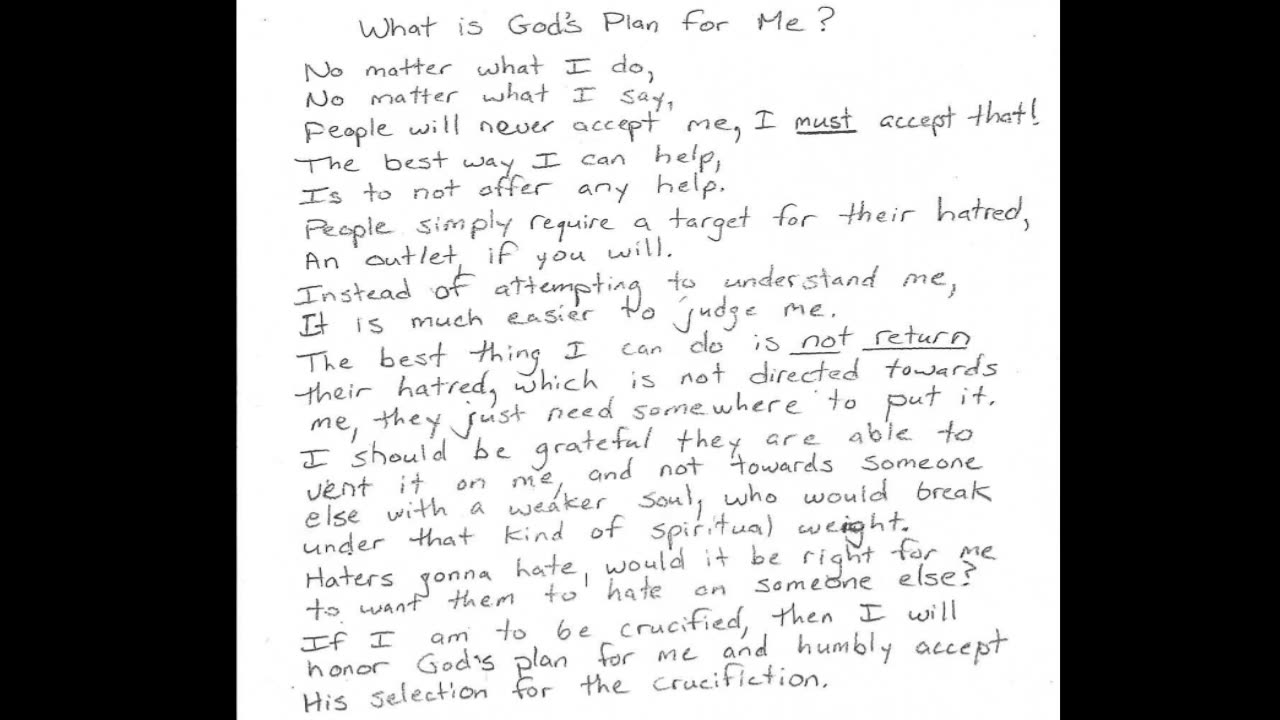 What is God's Plan for Me?
No matter what I do,
No matter what I say,
People will never accept me, I must accept that!
The best way I can help,
Is to not offer any help.
People simply require a target for their hatred,
An outlet, if you will.
Instead of attempting to understand me,
It is much easier to judge me.
The best thing I can do is not return
their hatred, which is not directed towards
me, they just need somewhere to put it.
I should be grateful they are able to
vent it on me, and not towards someone
else with a weaker soul, who would break
under that kind of spiritual weight.
Haters gonna hate, would it be right for me
to want them to hate on someone else?
If I am to be crucified, then I will
honor God's plan for me and humbly accept
His selection for the crucifiction.